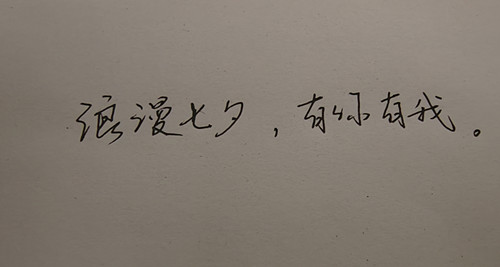 浪漫七夕，有你有我。